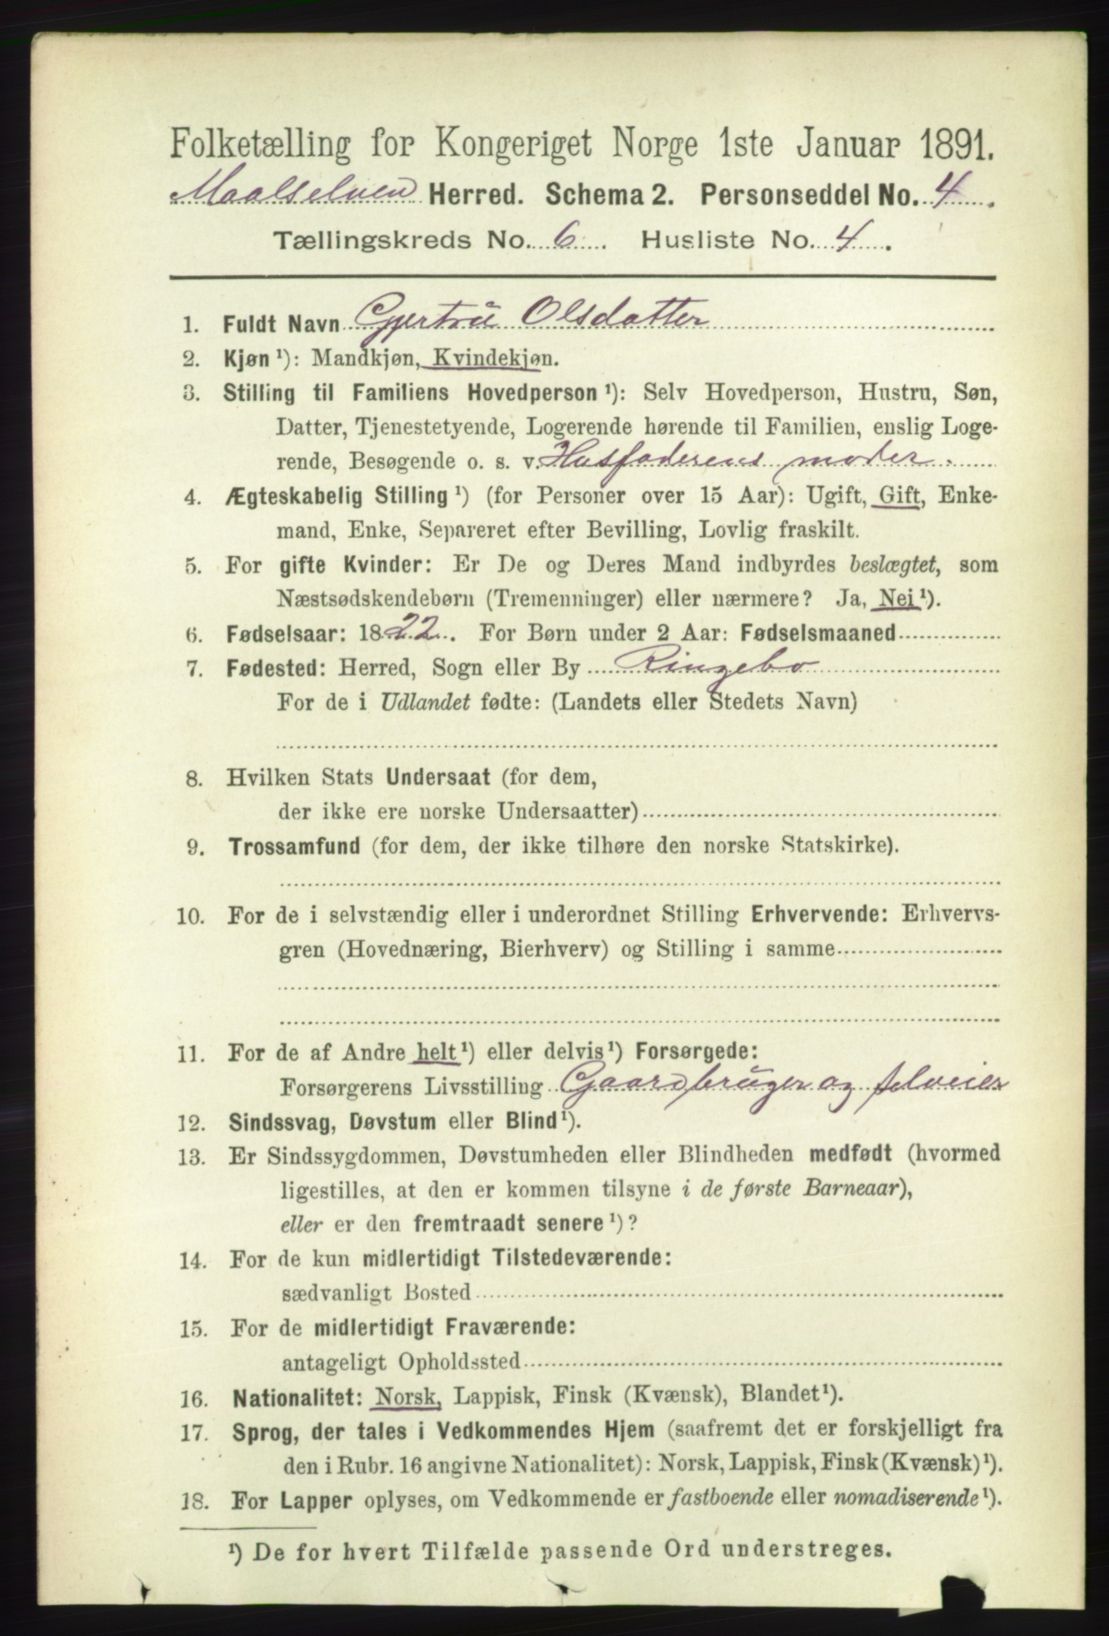 Folketælling for Kongeriget Norge 1ste Januar 1891.
Maalselven Herred. Schema 2. Personseddel No. 4.
Tællingskreds No. 6. Husliste No. 4.
1. Fuldt Navn Gjertrü Olsdatter
2. Kjøn ¹): Mandkjøn, Kvindekjøn.
3. Stilling til Familiens Hovedperson ¹): Selv Hovedperson, Hustru, Søn,
Datter, Tjenestetyende, Logerende hørende til Familien, enslig Loge-
rende, Besøgende o. s. v. Husfaderens moder.
4. Ægteskabelig Stilling ¹) (for Personer over 15 Aar): Ugift, Gift, Enke-
mand, Enke, Separeret efter Bevilling, Lovlig fraskilt.
5. For gifte Kvinder: Er De og Deres Mand indbyrdes beslægtet, som
Næstsødskendebørn (Tremenninger) eller nærmere? Ja, Nei ¹).
6. Fødselsaar: 1822. For Børn under 2 Aar: Fødselsmaaned
7. Fødested: Herred, Sogn eller By Ringebo
For de i Udlandet fødte: (Landets eller Stedets Navn)
8. Hvilken Stats Undersaat (for dem,
der ikke ere norske Undersaatter)
9. Trossamfund (for dem, der ikke tilhøre den norske Statskirke).
10. For de i selvstændig eller i underordnet Stilling Erhvervende: Erhvervs-
gren (Hovednæring, Bierhverv) og Stilling i samme
11. For de af Andre helt ¹) eller delvis ¹) Forsørgede:
Forsørgerens Livsstilling Gaardbrüger og selveier
12. Sindssvag, Døvstum eller Blind ¹).
13. Er Sindssygdommen, Døvstumheden eller Blindheden medfødt (hvormed
ligestilles, at den er kommen tilsyne i de første Barneaar),
eller er den fremtraadt senere ¹)?
14. For de kun midlertidigt Tilstedeværende:
sædvanligt Bosted
15. For de midlertidigt Fraværende:
antageligt Opholdssted
16. Nationalitet: Norsk, Lappisk, Finsk (Kvænsk), Blandet ¹).
17. Sprog, der tales i Vedkommendes Hjem (saafremt det er forskjelligt fra
den i Rubr. 16 angivne Nationalitet): Norsk, Lappisk, Finsk (Kvænsk) ¹).
18. For Lapper oplyses, om Vedkommende er fastboende eller nomadiserende ¹).
¹) De for hvert Tilfælde passende Ord understreges.